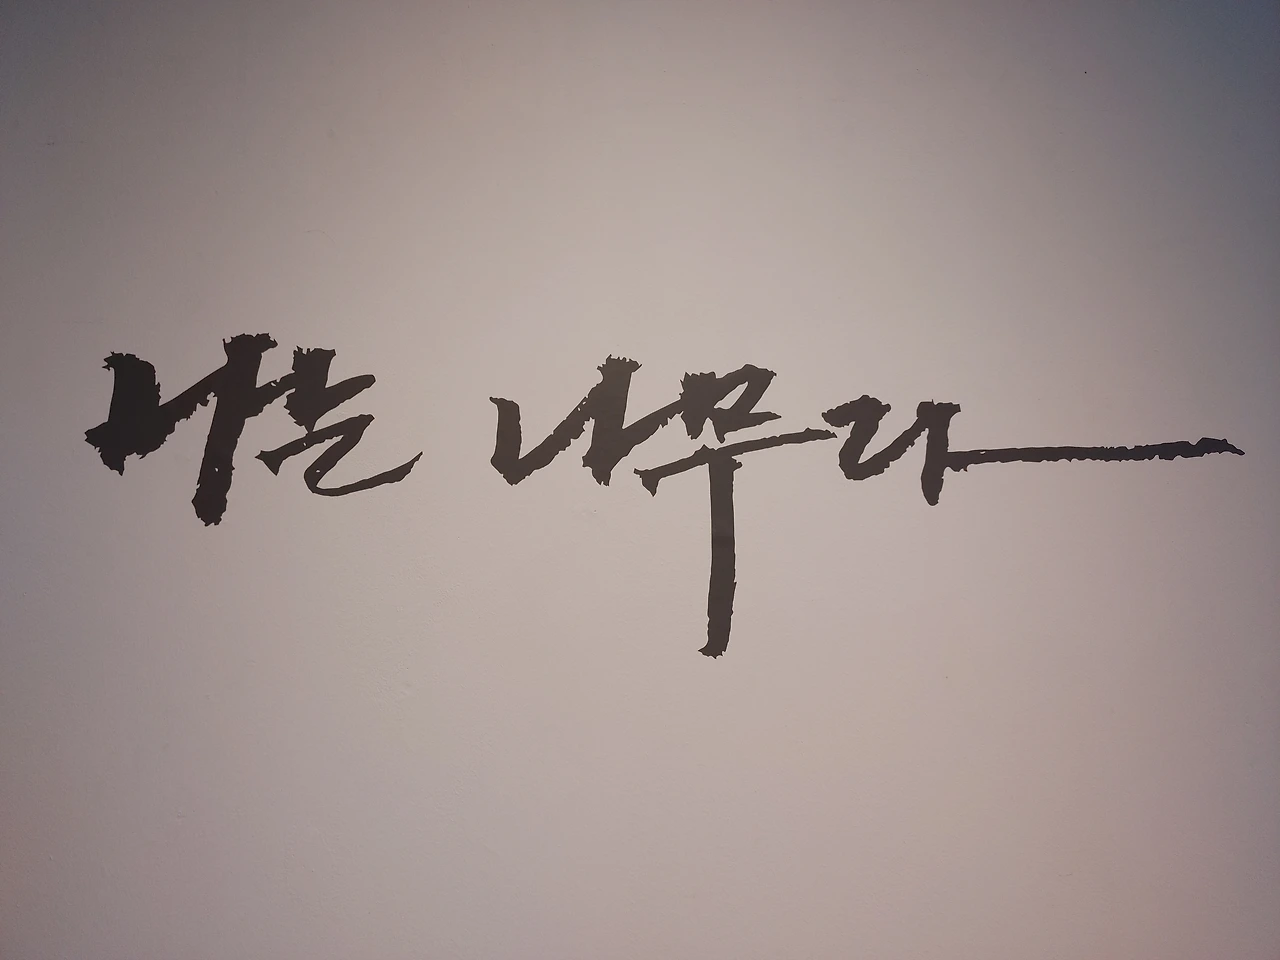 나는 나무다